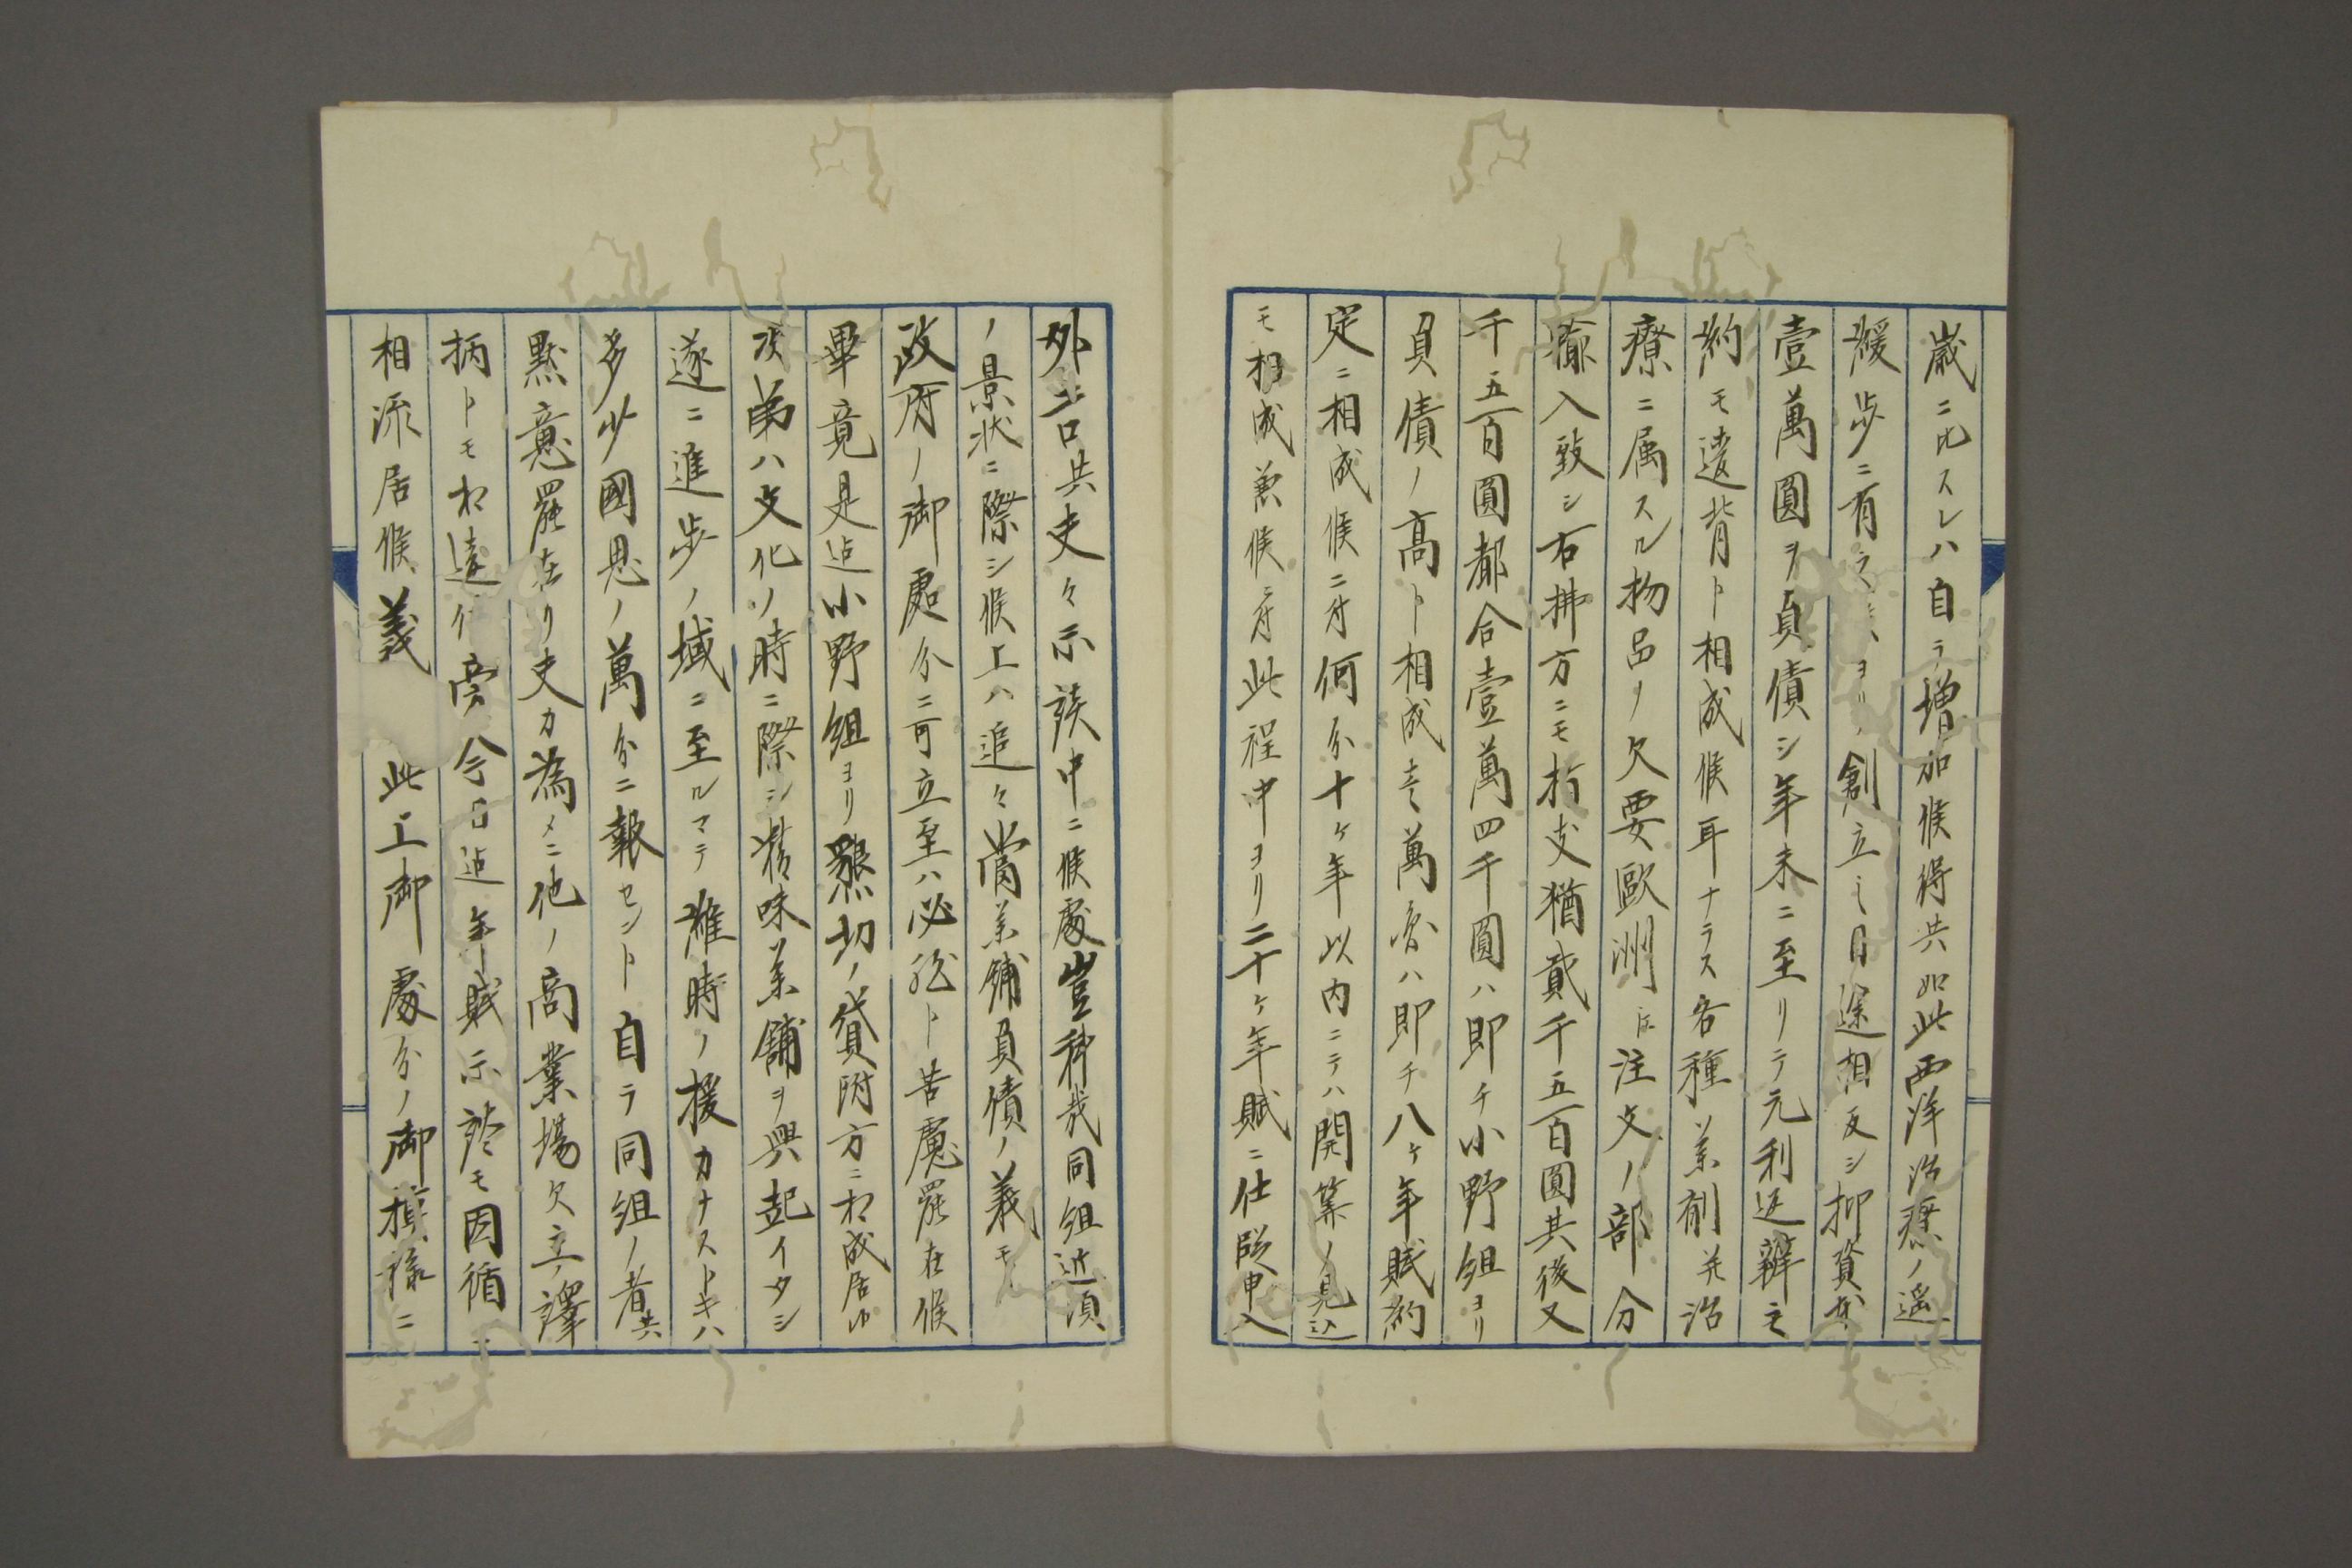 歳ニ比スレハ自ラ増加候得共如此西洋治療ノ遥
緩歩ニ有之ヨリ創立之目途相反シ抑資本
壹萬圓ヲ負債シ年末ニ至リテ元利返辨之
約モ違背ト相成候耳ナラス各種薬剤并治
療ニ属スル物品ノ欠要歐洲江注文ノ部分
輸入致シ右拂方ニモ折支猶貳千五百圓其後又
千五百圓都合壹萬四千圓ハ即チ小野組ヨリ
負債ノ高ト相成壱萬ハ即チ八ケ年賦約
定ニ相成候ニ付何分十ケ年以内ニテハ開業ノ見込
モ相成兼候ニ付此程中ヨリ二十ケ年賦ニ仕段申入
外吉共史々示談中ニ候處豈科哉同組近頃
ノ景状ニ際シ候上ハ追々當薬舗負債ノ義モ
政府ノ御處分ニ可立至ハ必然ト苦慮罷在候
畢竟是迠小野組ヨリ懇切ノ貸附方ニ相成居
次第ハ文化ノ時ニ際シ精味薬舗ヲ興起イタシ
遂ニ進歩ノ域ニ至ルマテ維時ノ援力ナストキハ
多少國恩ノ萬分ニ報セント自ラ同組ノ者共
黙意罷在リ史カ為メニ他ノ商業場欠立ノ譯
柄トモ相違ヒ旁今日迠年賦示談モ因循ニ
相流居候義 此上御處分ノ御模様ニ